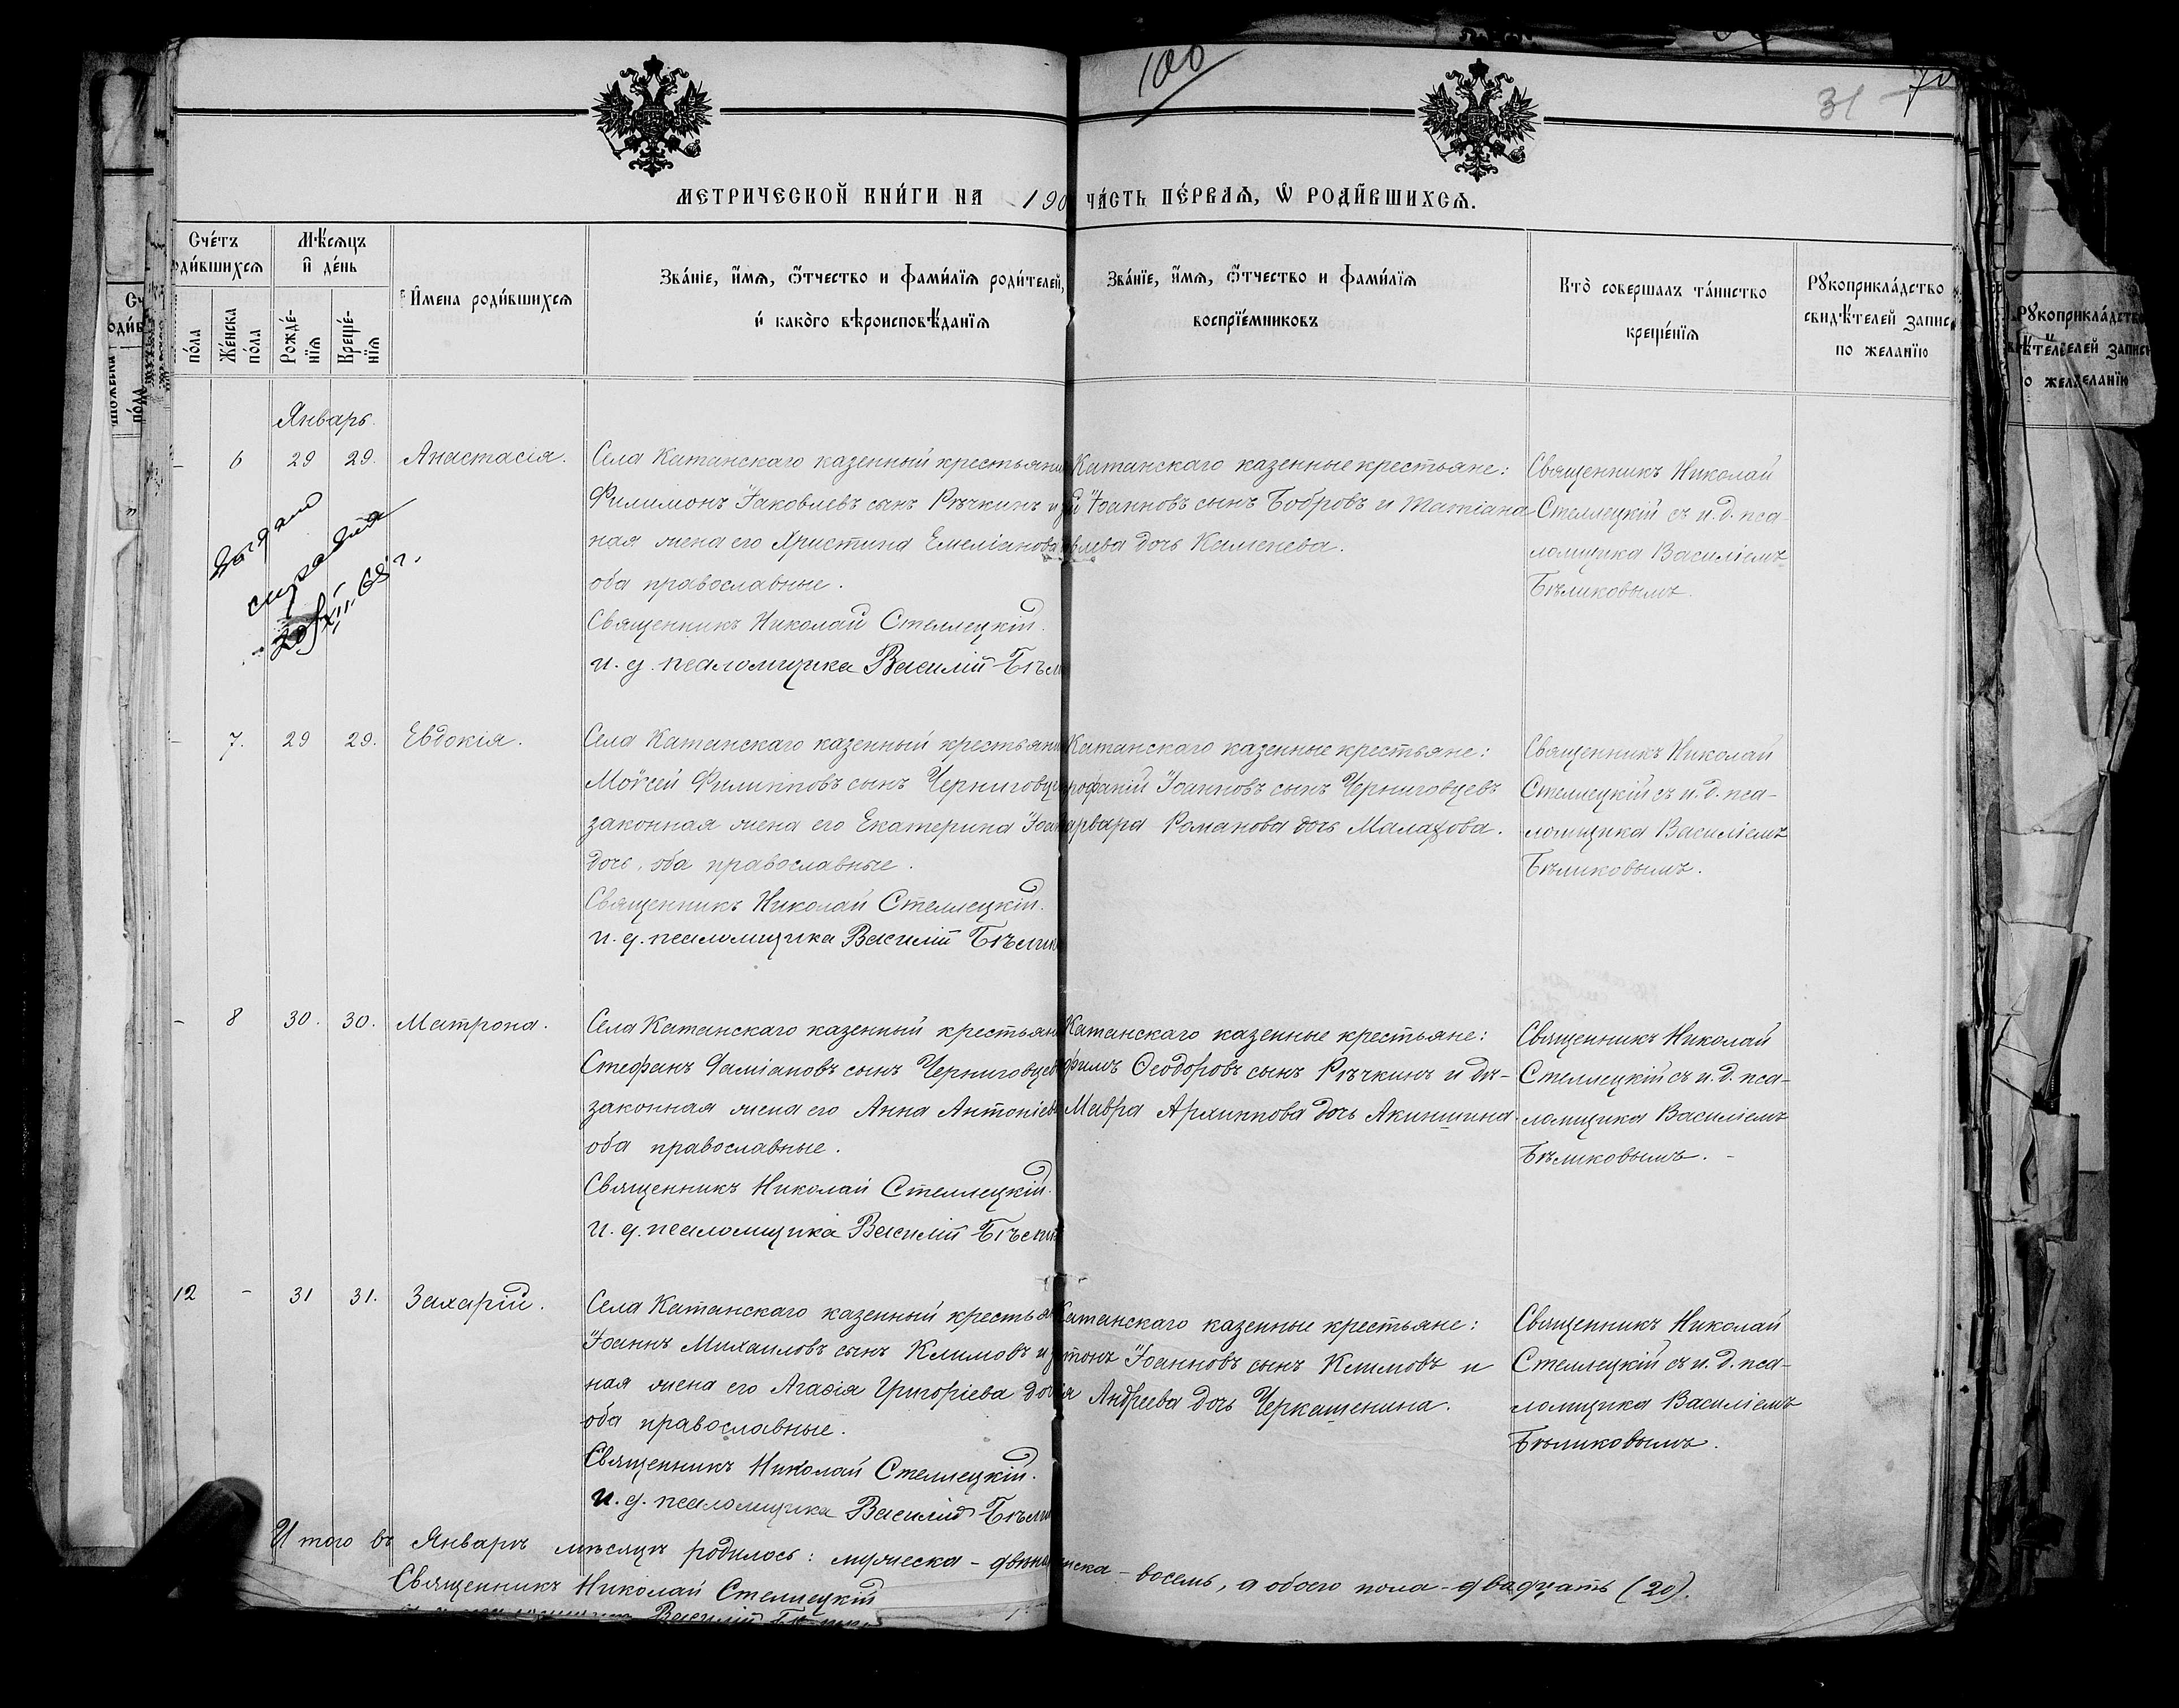 100
31
70
МЕТРИЧЕСКОЙ КНИ́ГИ НА 190
ЧА́СТЬ ПЕ́РВАѦ, Ѡ РОДИ́ВШИХСѦ.
Сче́тъ
оди́вшихсѧ
по́ла
Же́нска по́ла
Мѣ́сѧцъ и҆ де́нь
Рожде́-нїѧ
Креще́-нїѧ
И҆мена роди́вшихсѧ
Зва́нїе, и҆́мѧ, ѻ҆́тчество и фами́лїѧ роди́телей,
и҆ како́го вѣроисповѣ́данїѧ
Зва́нїе, и҆́мѧ, ѻ҆́тчество и фами́лїѧ
воспрїе́мниковъ
Кто̀ совершалъ та́инство
креще́нїѧ
Рꙋкоприкла́дство
свидѣ́телей запис
по желанїю
Январь.
– 6 29 29. Анастасія.
Села Катанскаго казенный крестьянин
Филимонъ Іаковлевъ сынъ Рѣчкинъ и з
ная жена его Христина Емеліанова
оба православные.
Священникъ Николай Стеллецкій.
и. д. псаломщика Василій Бѣл
Катанскаго казенные крестьяне:
й Іоанновъ сынъ Бобровъ и Татіана
влева дочь Каменева.
Священникъ Николай
Стеллецкій съ и. д. пса-
ломщика Василіемъ
Бѣликовымъ.
выдана
справка
20/XII.68 г.
– 7. 29 29. Евдокія.
Села Катанскаго казенный крестьяни
Моѷсей Филипповъ сынъ Черниговце
законная жена его Екатерина Іоан
дочь, оба православные.
Священникъ Николай Стеллецкій.
и. д. псаломщика Василій Бѣлик
Катанскаго казенные крестьяне:
рофаній Іоанновъ сынъ Черниговцевъ
арвара Романова дочь Малахова.
Священникъ Николай
Стеллецкій съ и. д. пса-
ломщика Василіемъ
Бѣликовымъ.
– 8 30. 30. Матрона.
Села Катанскаго казенный крестьяни
Стефанъ Даміановъ сынъ Черниговцев
законная жена его Анна Антоніев
оба православные.
Священникъ Николай Стеллецкій.
и. д. псаломщика Василій Бѣлик
Катанскаго казенные крестьяне:
филъ Ѳеодоровъ сынъ Рѣчкинъ и дѣ-
Мавра Архиппова дочь Акиншина.
Священникъ Николай
Стеллецкій съ и. д. пса-
ломщика Василіемъ
Бѣликовымъ. –
12 – 31 31. Захарій.
Села Катанскаго казенный крестьян
Іоаннъ Михаиловъ сынъ Климовъ и з
ная жена его Агаѳія Григоріева доч
оба православные.
Священникъ Николай Стеллецкій.
и. д. псаломщика Василій Бѣли
Катанскаго казенные крестьяне:
тонъ Іоанновъ сынъ Климовъ и
я Андреева дочь Черкашенина.
Священникъ Николай
Стеллецкій съ и. д. пса-
ломщика Василіемъ
Бѣликовымъ.
Итого въ Январѣ мѣсяцѣ родилось: мужеска – двѣна нска – восемь, а обоего пола – двадцать (20).
Священникъ Николай Стеллецкій
Василій